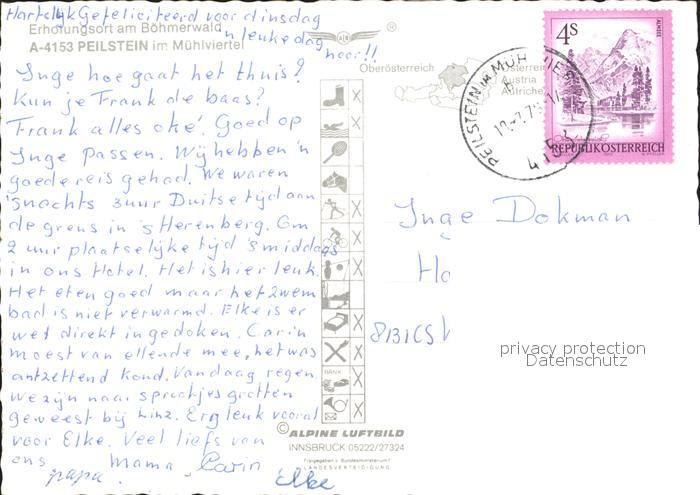 Hartelyk Gefeliciteerd voor dinsdag
'n leuke dag
hoor!!
Erholungsort am Böhmerwald
A-4153 PEILSTEIN im Mühlviertel
Inge hoe gaat het thuis?
Kun je Frank de baas?
Frank alles oké. Goed op
Inge Passen. Wij hebben 'n
goede reis gehad. We waren
'snachts 3 uur Duitse tijd aan
de grens in 's Herenberg. Om
2 uur plaatselijke tijd 's middags
in ons Hotel. Het is hier leuk.
Het eten goed maar het zwem
bad is niet verwarmd. Elke is er
wel direkt in gedoken. Carin
moest van ellende mee, het was
ontzettend koud. Vandaag regen.
We zijn naar sprookjes grotten
geweest bij Linz. Erg leuk vooral
voor Elke. Veel liefs van
ons Mama, Carin
papa. Elke
Oberösterreich
Österreich
Austria
Autriche
4S
ALMSEE
REPUBLIK ÖSTERREICH
PEILSTEIN IM MÜHLVIERTEL
4153
Inge Dokman
Ho
8131CS
privacy protection
Datenschutz
BANK
© ALPINE LUFTBILD
INNSBRUCK 05222/27324
Freigegeben v. Bundesministerium f.
LANDESVERTEIDIGUNG